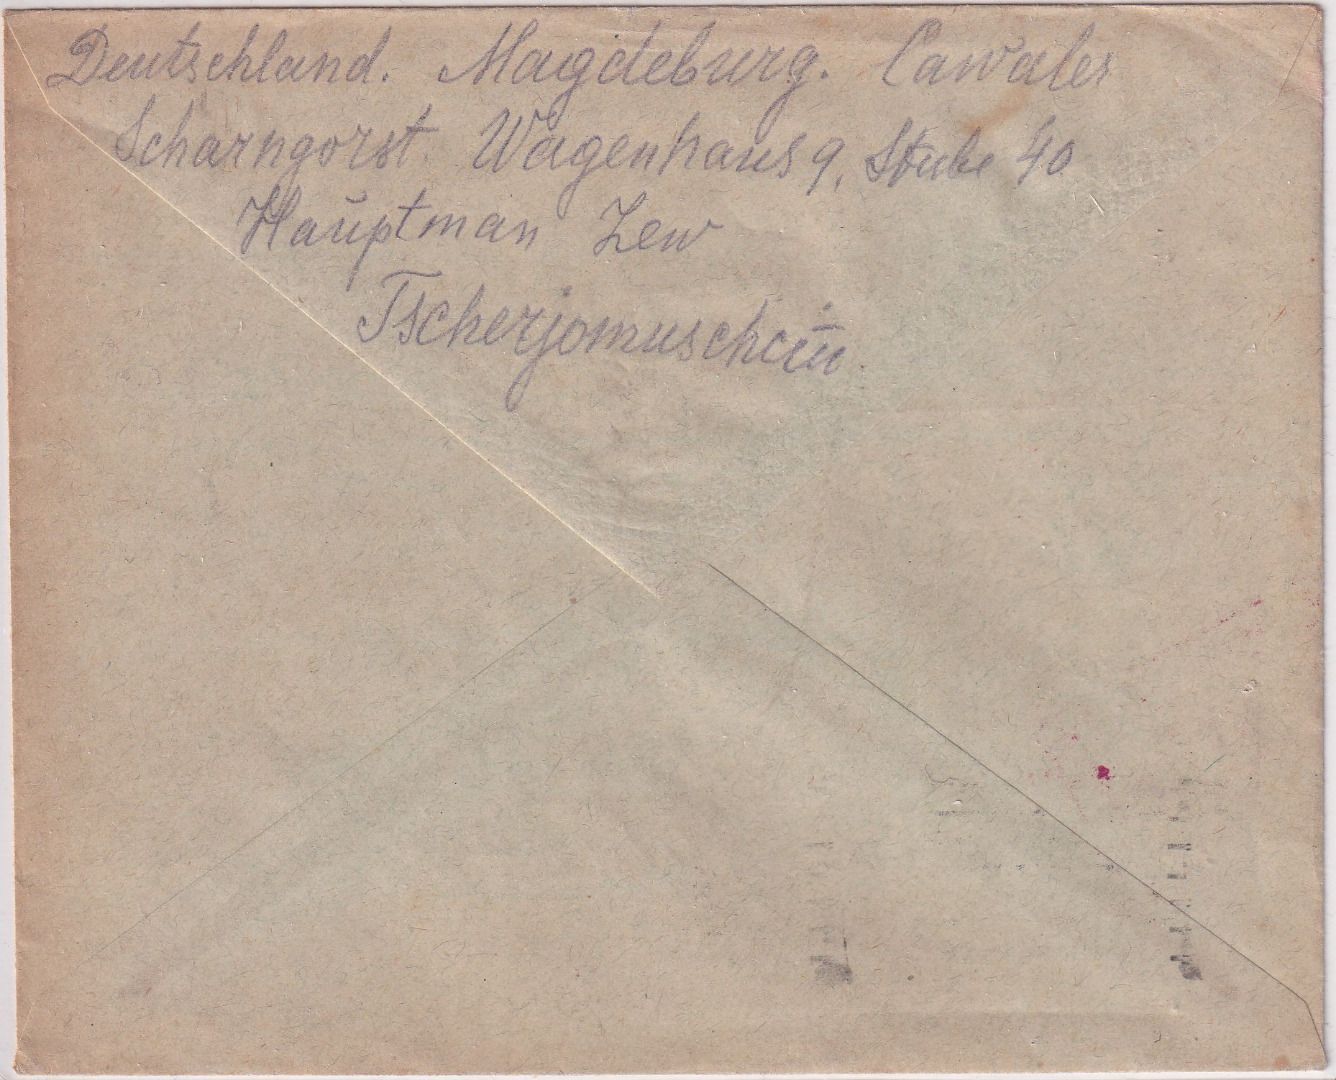 Deutschland. Magdeburg. Cawaler
Scharngorst Wagenhaus 9, Stube 40
Hauptman Lew
Tscherjomuschcin